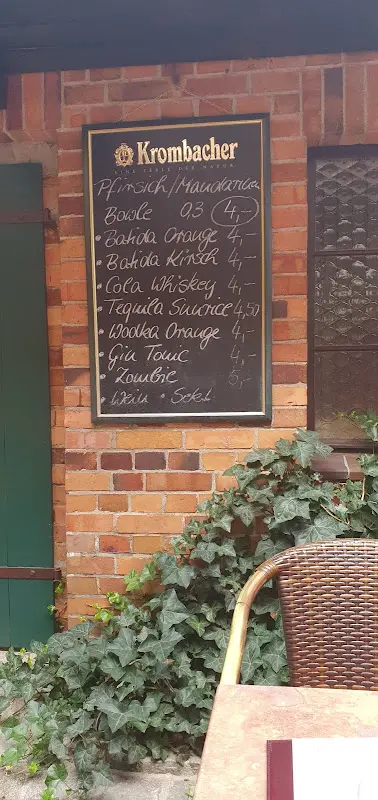 Krombacher
EINE PERLE DER NATUR
Pfirsich/Mandarinen
Bowle 0,3 4,-
• Batida Orange 4,-
• Batida Kirsch 4,-
• Cola Whiskey 4,-
• Tequila Sunrice 4,50
• Wodka Orange 4,-
• Gin Tonic 4,-
• Zombie 5,-
• Wein • Sekt